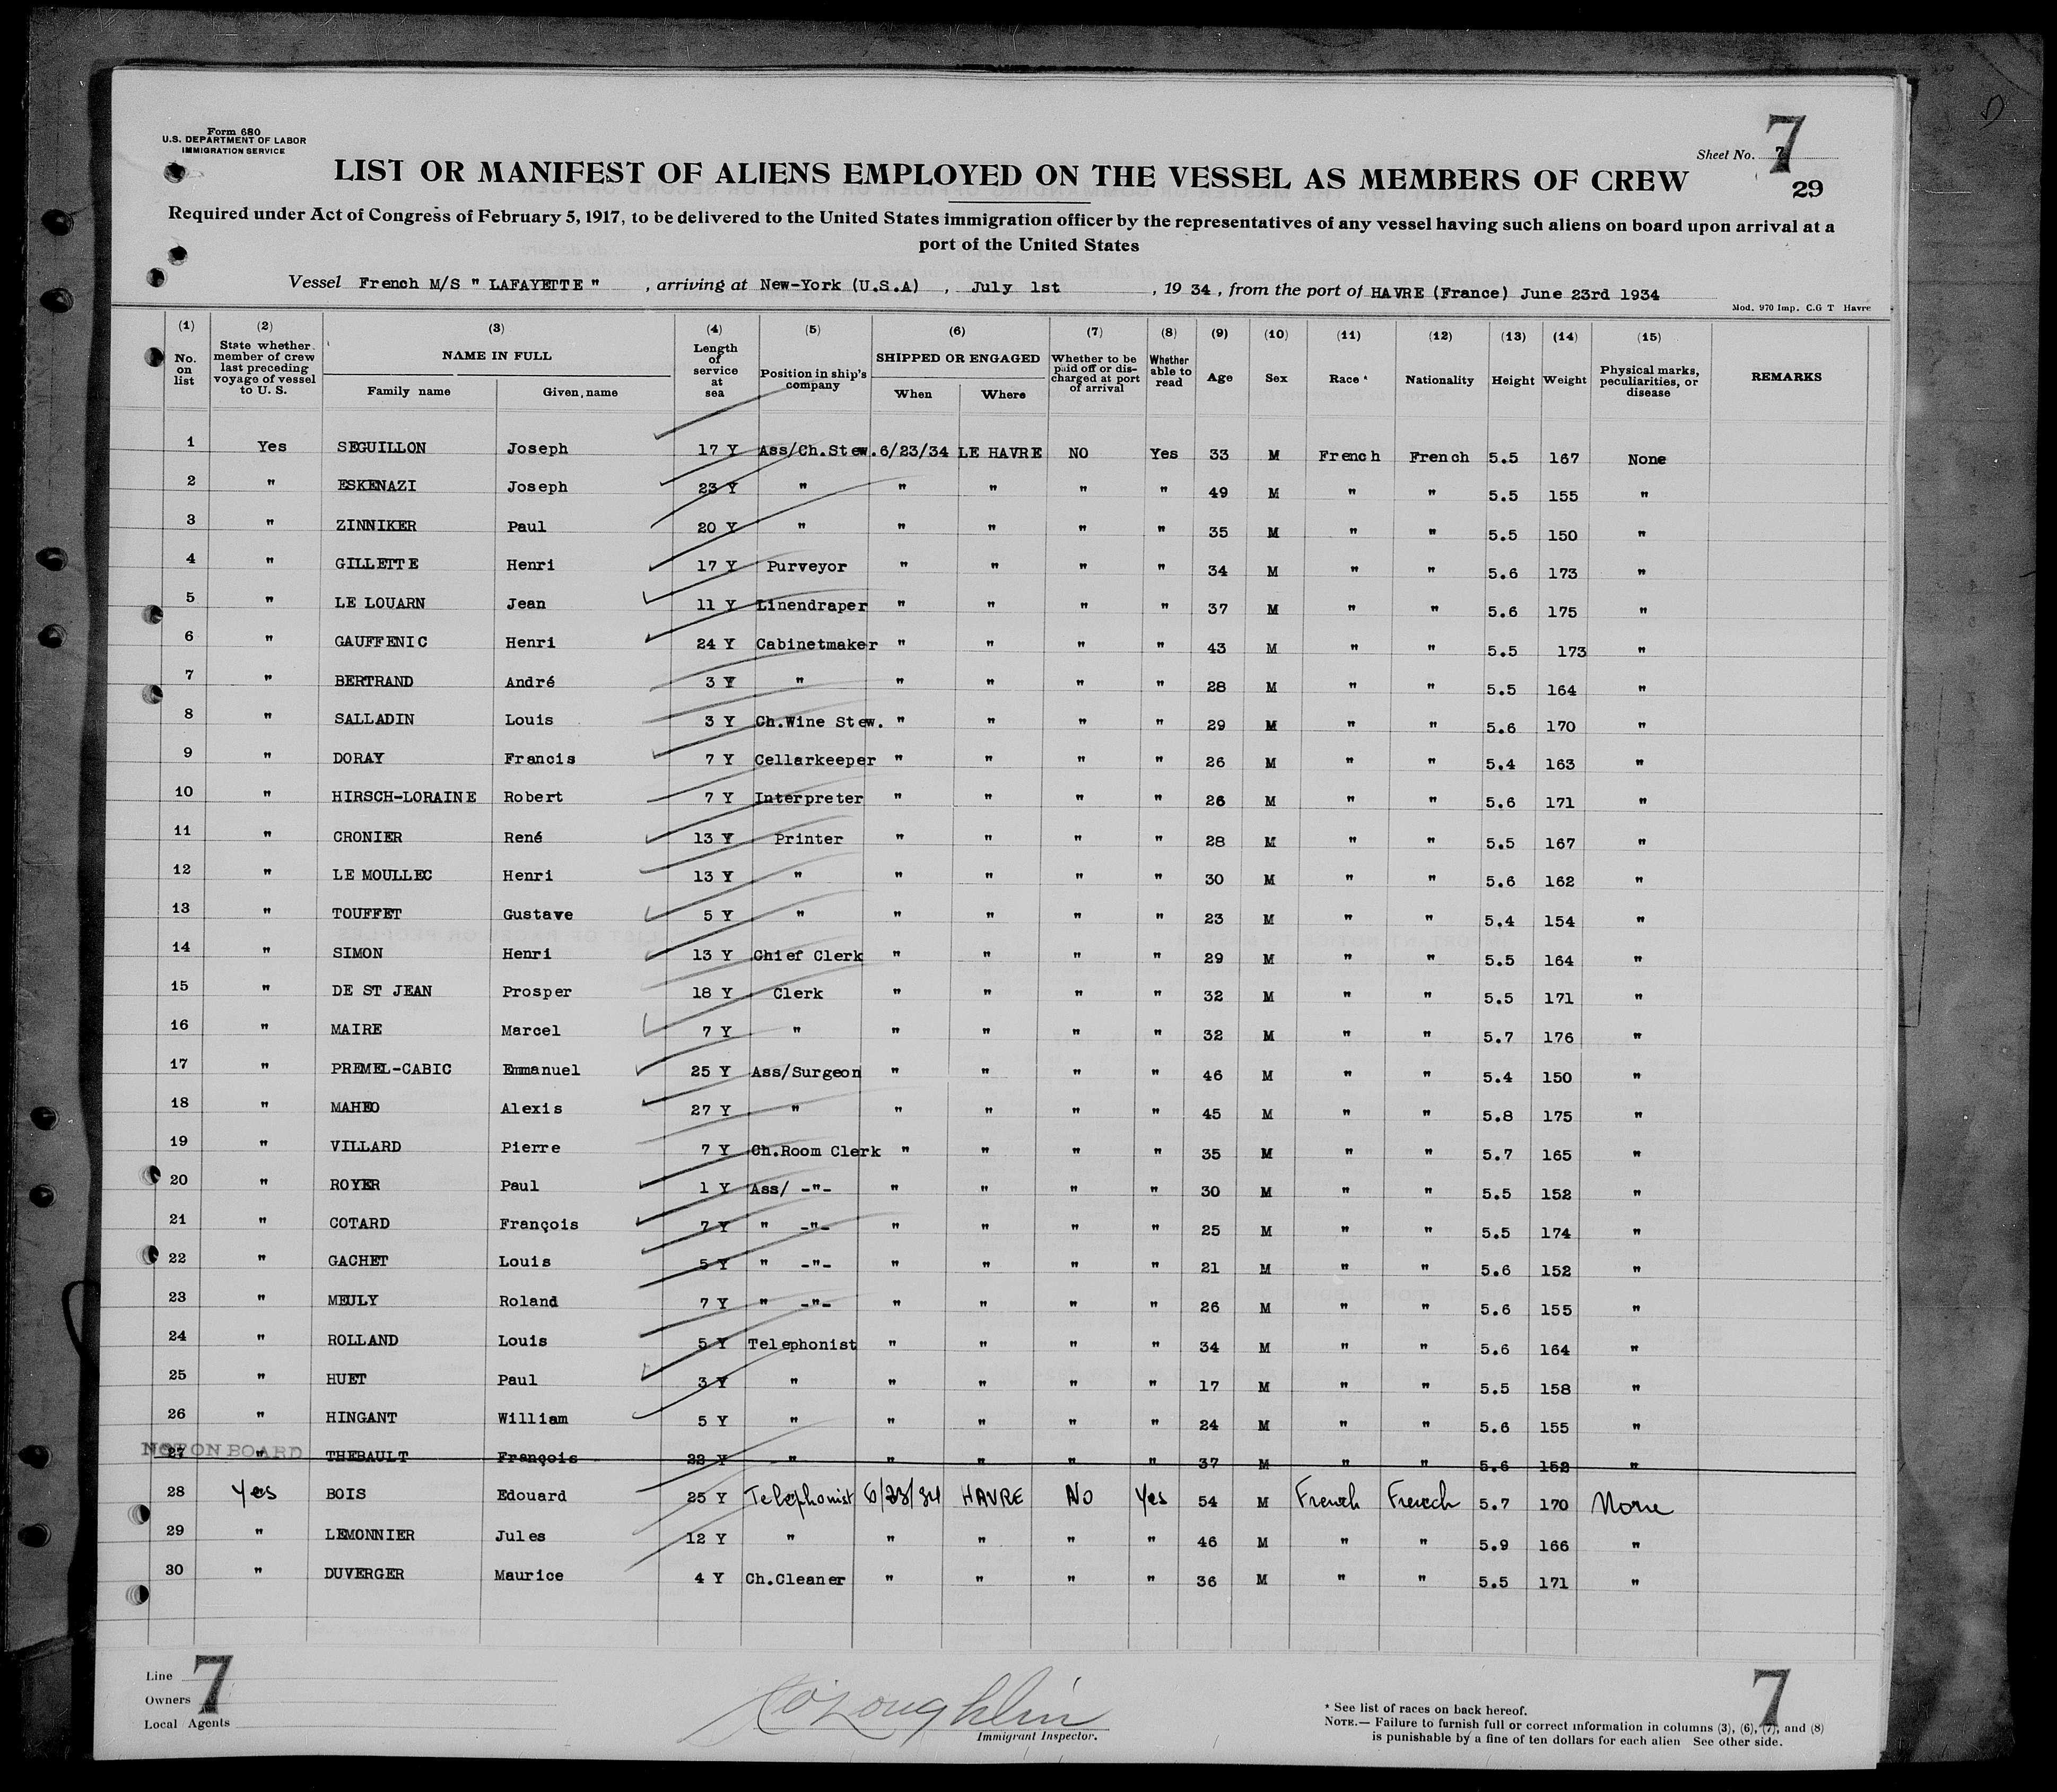 Form 680
U.S. DEPARTMENT OF LABOR
IMMIGRATION SERVICE
7
Sheet No. 7
29
LIST OR MANIFEST OF ALIENS EMPLOYED ON THE VESSEL AS MEMBERS OF CREW
Required under Act of Congress of February 5, 1917, to be delivered to the United States immigration officer by the representatives of any vessel having such aliens on board upon arrival at a
port of the United States
Vessel French M/S " LAFAYETTE " , arriving at New-York (U.S.A) , July 1st , 19 34 , from the port of HAVRE (France) June 23rd 1934
Mod. 970 Imp. C.G T Havre
(1) (2) (3) (4) (5) (6) (7) (8) (9) (10) (11) (12) (13) (14) (15)
No. on list State whether member of crew last preceding voyage of vessel to U. S. NAME IN FULL Family name Given name Length of service at sea Position in ship's company SHIPPED OR ENGAGED When Where Whether to be paid off or discharged at port of arrival Whether able to read Age Sex Race * Nationality Height Weight Physical marks, peculiarities, or disease REMARKS
1 Yes SEGUILLON Joseph 17 Y Ass/Ch.Stew. 6/23/34 LE HAVRE NO Yes 33 M French French 5.5 167 None
2 " ESKENAZI Joseph 23 Y " " " " " 49 M " " 5.5 155 "
3 " ZINNIKER Paul 20 Y " " " " " 35 M " " 5.5 150 "
4 " GILLETTE Henri 17 Y Purveyor " " " " 34 M " " 5.6 173 "
5 " LE LOUARN Jean 11 Y Linendraper " " " " 37 M " " 5.6 175 "
6 " GAUFFENIC Henri 24 Y Cabinetmaker " " " " 43 M " " 5.5 173 "
7 " BERTRAND André 3 Y " " " " " 28 M " " 5.5 164 "
8 " SALLADIN Louis 3 Y Ch.Wine Stew. " " " " 29 M " " 5.6 170 "
9 " DORAY Francis 7 Y Cellarkeeper " " " " 26 M " " 5.4 163 "
10 " HIRSCH-LORAINE Robert 7 Y Interpreter " " " " 26 M " " 5.6 171 "
11 " CRONIER René 13 Y Printer " " " " 28 M " " 5.5 167 "
12 " LE MOULLEC Henri 13 Y " " " " " 30 M " " 5.6 162 "
13 " TOUFFET Gustave 5 Y " " " " " 23 M " " 5.4 154 "
14 " SIMON Henri 13 Y Chief Clerk " " " " 29 M " " 5.5 164 "
15 " DE ST JEAN Prosper 18 Y Clerk " " " " 32 M " " 5.5 171 "
16 " MAIRE Marcel 7 Y " " " " " 32 M " " 5.7 176 "
17 " PREMEL-CABIC Emmanuel 25 Y Ass/Surgeon " " " " 46 M " " 5.4 150 "
18 " MAHEO Alexis 27 Y " " " " " 45 M " " 5.8 175 "
19 " VILLARD Pierre 7 Y Ch.Room Clerk " " " " 35 M " " 5.7 165 "
20 " ROYER Paul 1 Y Ass/ -"- " " " " 30 M " " 5.5 152 "
21 " COTARD François 7 Y " -"- " " " " 25 M " " 5.5 174 "
22 " GACHET Louis 5 Y " -"- " " " " 21 M " " 5.6 152 "
23 " MEULY Roland 7 Y " -"- " " " " 26 M " " 5.6 155 "
24 " ROLLAND Louis 5 Y Telephonist " " " " 34 M " " 5.6 164 "
25 " HUET Paul 3 Y " " " " " 17 M " " 5.5 158 "
26 " HINGANT William 5 Y " " " " " 24 M " " 5.6 155 "
NOT ON BOARD
27 " THEBAULT François 22 Y " " " " " 37 M " " 5.6 152 "
28 Yes BOIS Edouard 25 Y Telephonist 6/23/34 HAVRE No Yes 54 M French French 5.7 170 None
29 " LEMONNIER Jules 12 Y " " " " " 46 M " " 5.9 166 "
30 " DUVERGER Maurice 4 Y Ch.Cleaner " " " " 36 M " " 5.5 171 "
Line
Owners
Local Agents
7
O'Loughlin
Immigrant Inspector.
7
* See list of races on back hereof.
NOTE.— Failure to furnish full or correct information in columns (3), (6), (7), and (8)
is punishable by a fine of ten dollars for each alien See other side.